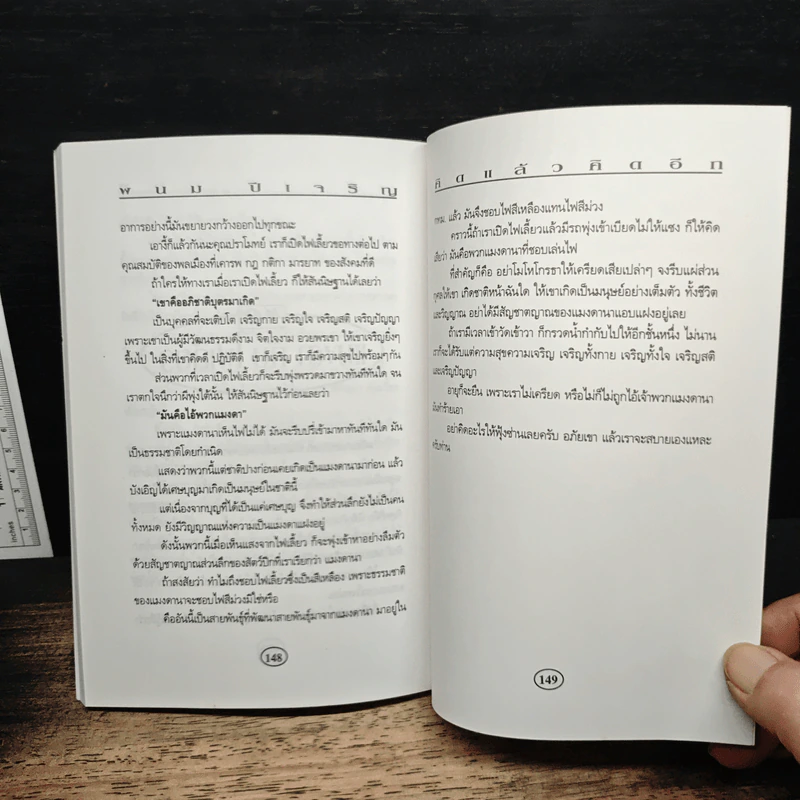 พนม ปีเจริญ
อาการอย่างนี้มันขยายวงกว้างออกไปทุกขณะ
เอางี้ก็แล้วกันนะคุณปราโมทย์ เราก็เปิดไฟเลี้ยวขอทางต่อไป ตาม
คุณสมบัติของพลเมืองที่เคารพ กฎ กติกา มารยาท ของสังคมที่ดี
ถ้าใครให้ทางเราเมื่อเราเปิดไฟเลี้ยว ก็ให้สันนิษฐานได้เลยว่า
"เขาคืออภิชาติบุตรมาเกิด"
เป็นบุคคลที่จะเติบโต เจริญกาย เจริญใจ เจริญสติ เจริญปัญญา
เพราะเขาเป็นผู้มีวัฒนธรรมดีงาม จิตใจงาม อวยพรเขา ให้เขาเจริญยิ่งๆ
ขึ้นไป ในสิ่งที่เขาคิดดี ปฏิบัติดี เขาก็เจริญ เราก็มีความสุขไปพร้อมๆ กัน
ส่วนพวกที่เวลาเปิดไฟเลี้ยวก็จะรีบพุ่งพรวดมาขวางทันทีทันใด จน
เราตกใจนึกว่าผีพุ่งใต้นั้น ให้สันนิษฐานไว้ก่อนเลยว่า
"มันคือไอ้พวกแมงดา"
เพราะแมงดานาเห็นไฟไม่ได้ มันจะรีบปรี่เข้ามาหาทันทีทันใด มัน
เป็นธรรมชาติโดยกำเนิด
แสดงว่าพวกนี้แต่ชาติปางก่อนเคยเกิดเป็นแมงดานามาก่อน แล้ว
บังเอิญได้เศษบุญมาเกิดเป็นมนุษย์ในชาตินี้
แต่เนื่องจากบุญที่ได้เป็นแค่เศษบุญ จึงทำให้ส่วนลึกยังไม่เป็นคน
ทั้งหมด ยังมีวิญญาณแห่งความเป็นแมงดาแฝงอยู่
ดังนั้นพวกนี้เมื่อเห็นแสงจากไฟเลี้ยว ก็จะพุ่งเข้าหาอย่างลืมตัว
ด้วยสัญชาตญาณส่วนลึกของสัตว์ปีกที่เราเรียกว่า แมงดานา
ถ้าสงสัยว่า ทำไมถึงชอบไฟเลี้ยวซึ่งเป็นสีเหลือง เพราะธรรมชาติ
ของแมงดานาจะชอบไฟสีม่วงมิใช่หรือ
คืออันนี้เป็นสายพันธุ์ที่พัฒนาสายพันธุ์มาจากแมงดานา มาอยู่ใน
148
คิดแล้วคิดอีก
กทม. แล้ว มันจึงชอบไฟสีเหลืองแทนไฟสีม่วง
คราวนี้ถ้าเราเปิดไฟเลี้ยวแล้วมีรถพุ่งเข้าเบียดไม่ให้แซง ก็ให้คิด
เสียว่า มันคือพวกแมงดานาที่ชอบเล่นไฟ
ที่สำคัญก็คือ อย่าโมโหโกรธาให้เครียดเสียเปล่าๆ จงรีบแผ่ส่วน
กุศลให้เขา เกิดชาติหน้าฉันใด ให้เขาเป็นมนุษย์อย่างเต็มตัว ทั้งชีวิต
และวิญญาณ อย่าได้มีสัญชาตญาณของแมงดานาแอบแฝงอยู่เลย
ถ้าเรามีเวลาเข้าวัดเข้าวา ก็กรวดน้ำกำกับไปให้อีกชั้นหนึ่ง ไม่นาน
เราก็จะได้รับแต่ความสุขความเจริญ เจริญทั้งกาย เจริญทั้งใจ เจริญสติ
และเจริญปัญญา
อายุก็จะยืน เพราะเราไม่เครียด หรือไม่ก็ไม่ถูกไอ้เจ้าพวกแมงดานา
มันทำร้ายเอา
อย่าคิดอะไรให้ฟุ้งซ่านเลยครับ อภัยเขา แล้วเราจะสบายเองแหละ
ครับท่าน
149
inches 1 2 3 4 5 6